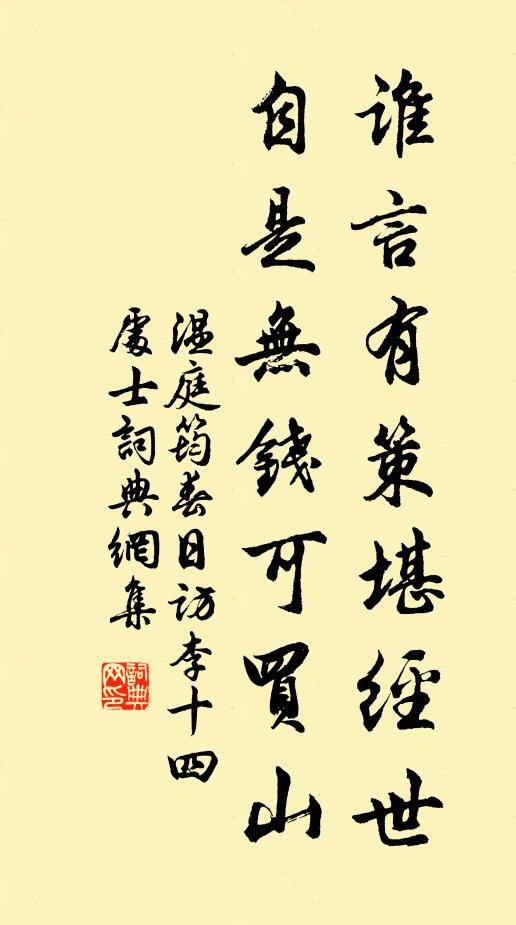 誰言有策堪經世
自是無錢可買山
溫庭筠春日訪李十四
處士詞典網集
詞典網印